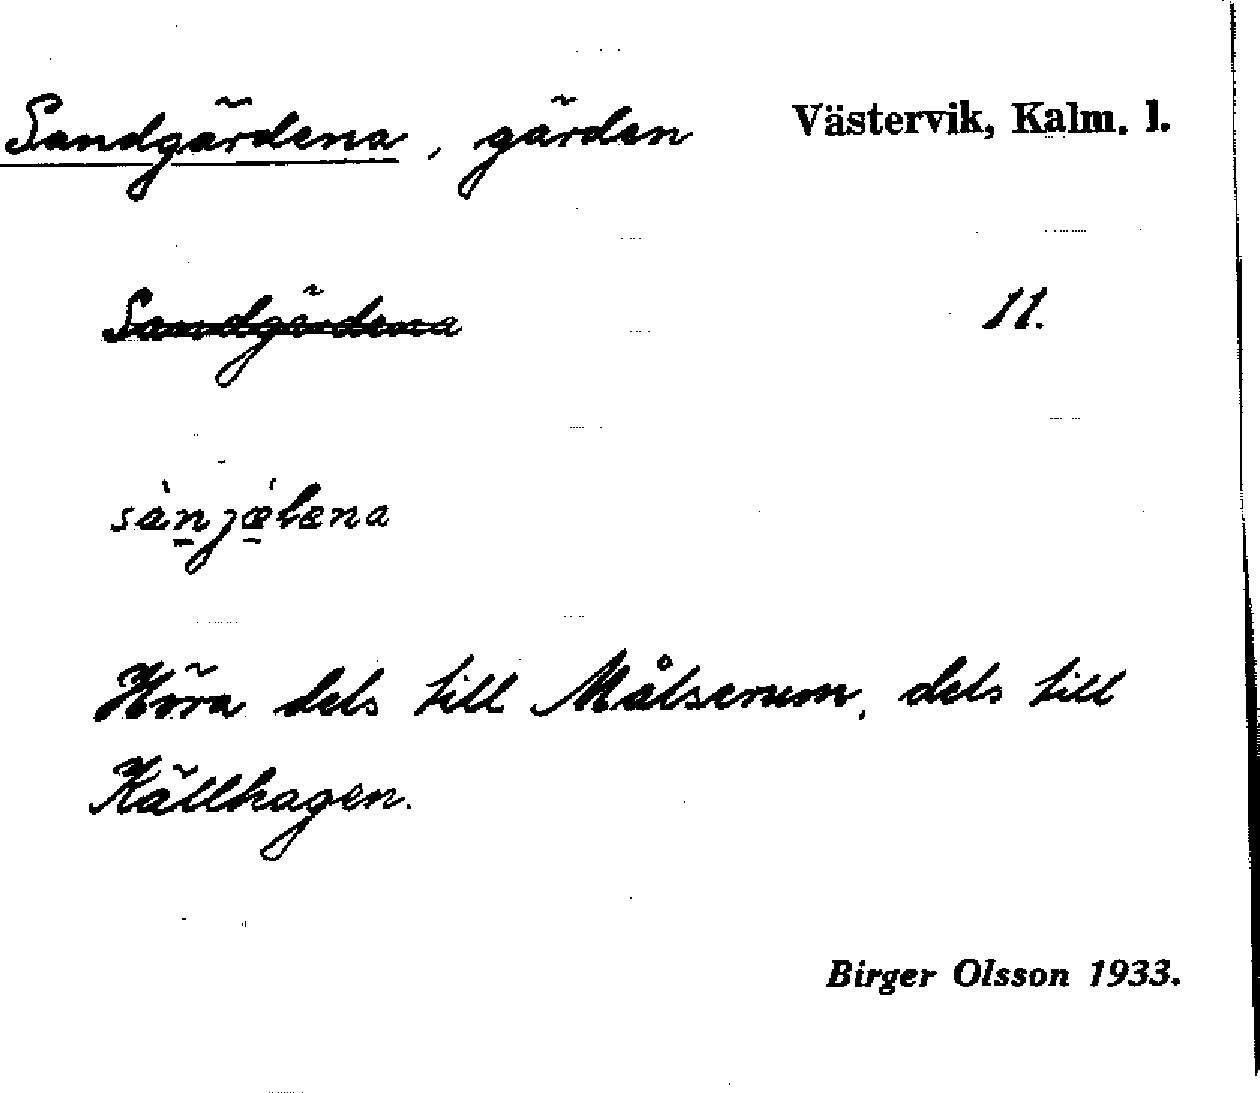 Sandgärdena, gärden Västervik, Kalm. l.
Sandgärdena 11.
Höra dels till Målserum, dels till
Källhagen.
Birger Olsson 1933.